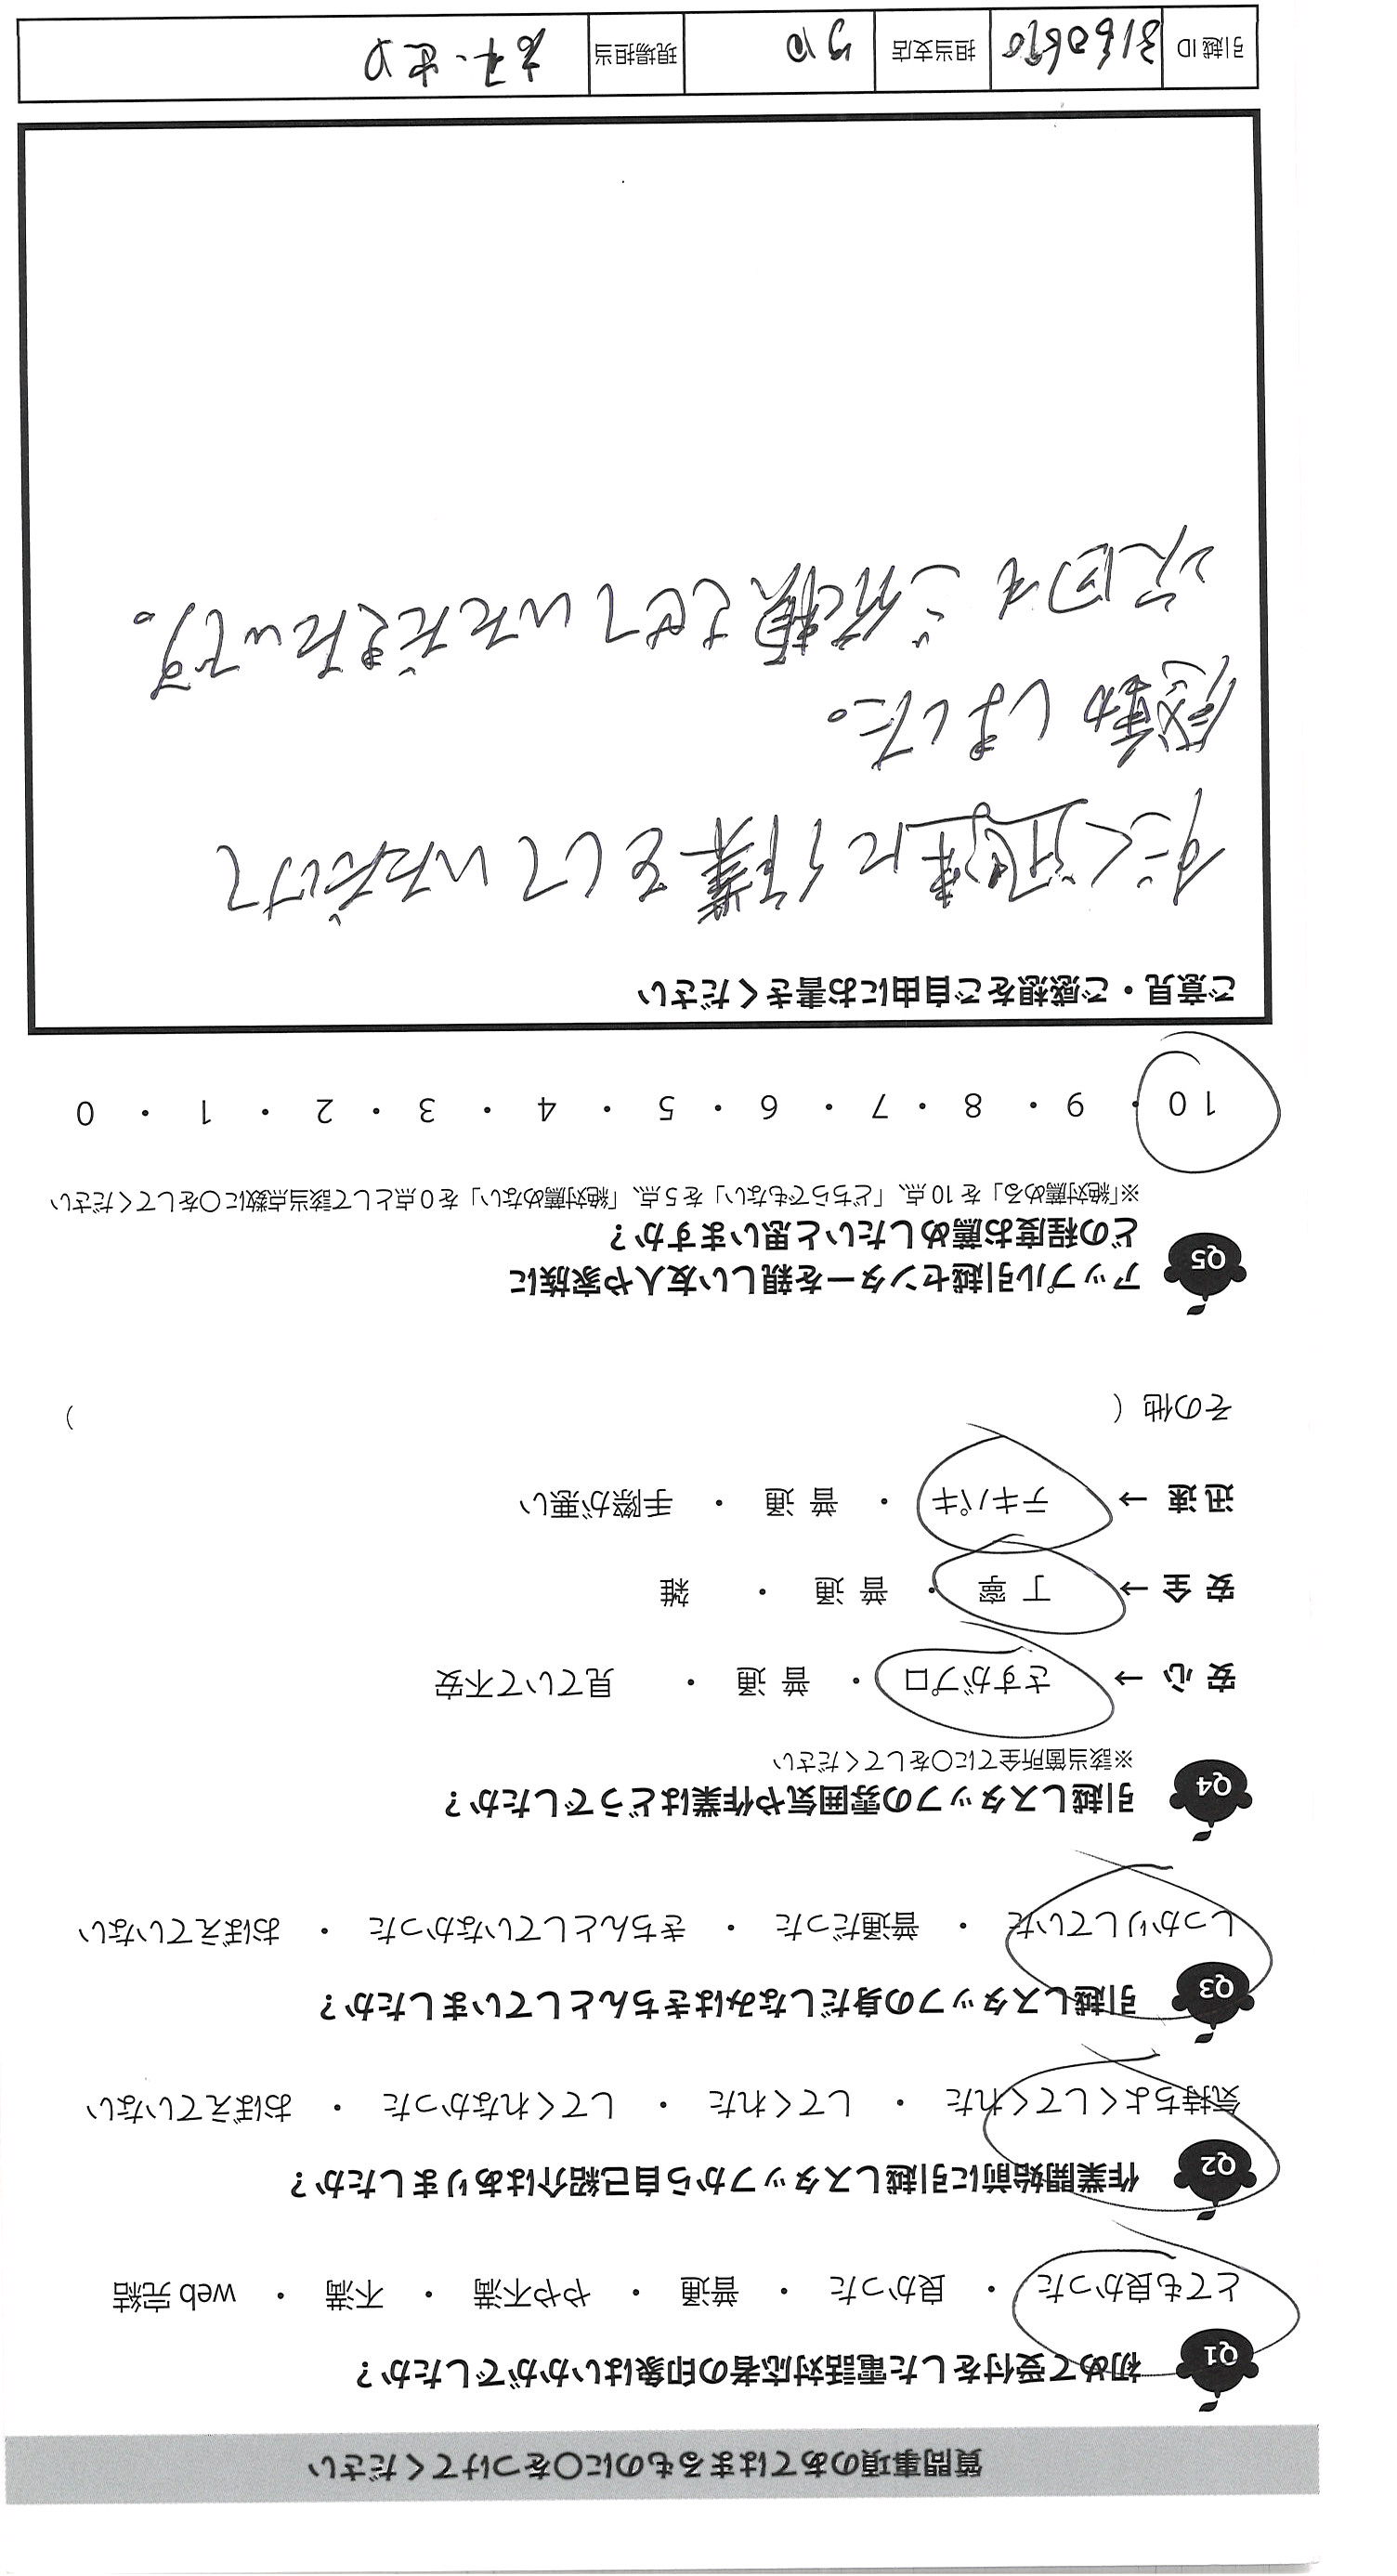 質問事項のあてはまるものに○をつけてください
Q1 初めて受付をした電話対応者の印象はいかがでしたか？
とても良かった ・ 良かった ・ 普通 ・ やや不満 ・ 不満 ・ web 完結
Q2 作業開始前に引越しスタッフから自己紹介はありましたか？
気持ちよくしてくれた ・ してくれた ・ してくれなかった ・ おぼえていない
Q3 引越しスタッフの身だしなみはきちんとしていましたか？
しっかりしていた ・ 普通だった ・ きちんとしていなかった ・ おぼえていない
Q4 引越しスタッフの雰囲気や作業はどうでしたか？
※該当箇所全てに○をしてください
安 心 → さすがプロ ・ 普 通 ・ 見ていて不安
安 全 → 丁 寧 ・ 普 通 ・ 雑
迅 速 → テキパキ ・ 普 通 ・ 手際が悪い
その他（ ）
Q5 アップル引越センターを親しい友人や家族に
どの程度お薦めしたいと思いますか？
※「絶対薦める」を 10 点、「どちらでもない」を 5 点、「絶対薦めない」を 0 点として該当点数に○をしてください
10 ・ 9 ・ 8 ・ 7 ・ 6 ・ 5 ・ 4 ・ 3 ・ 2 ・ 1 ・ 0
ご意見・ご感想をご自由にお書きください
すごく迅速に作業をしていただけて
感動しました。
次回もご依頼させていただきたいです。
引越 ID 3160690 担当支店 現場担当